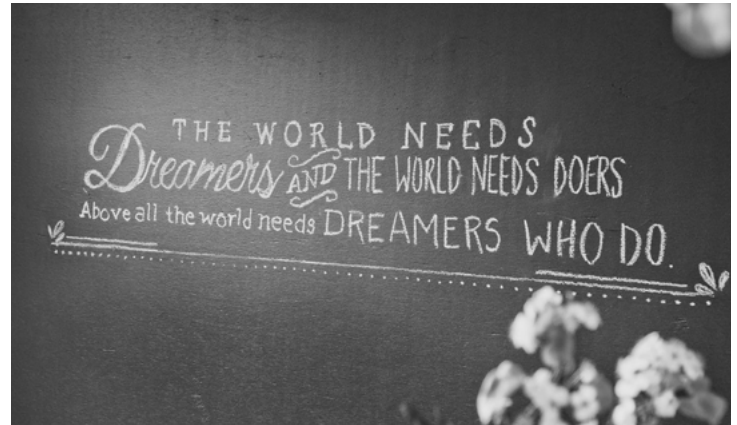 THE WORLD NEEDS
Dreamers AND THE WORLD NEEDS DOERS
Above all the world needs DREAMERS WHO DO.